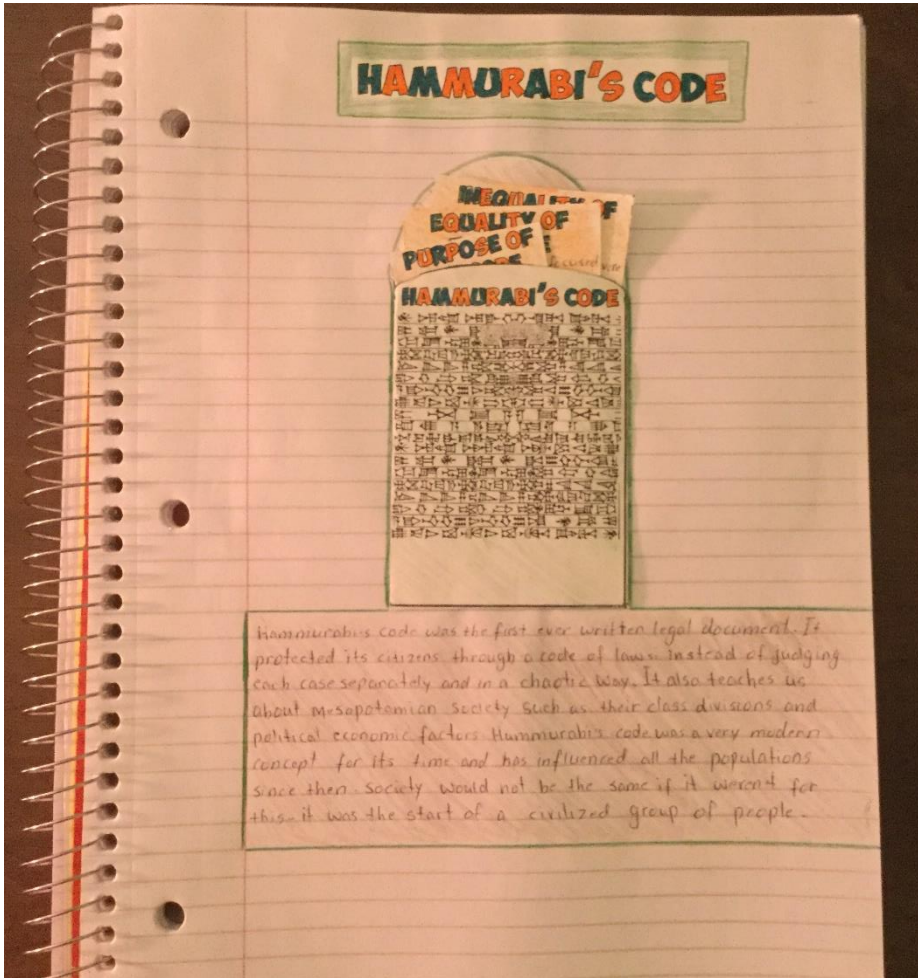 HAMMURABI'S CODE
INEQUALITY OF
EQUALITY OF
PURPOSE OF
CODE
focused
HAMMURABI'S CODE
Hammurabi's code was the first ever written legal document. It
protected its citizens through a code of laws instead of judging
each case separately and in a chaotic way. It also teaches us
about Mesopotamian society such as their class divisions and
political economic factors Hammurabi's code was a very modern
concept for its time and has influenced all the populations
since then. Society would not be the same if it weren't for
this- it was the start of a civilized group of people.